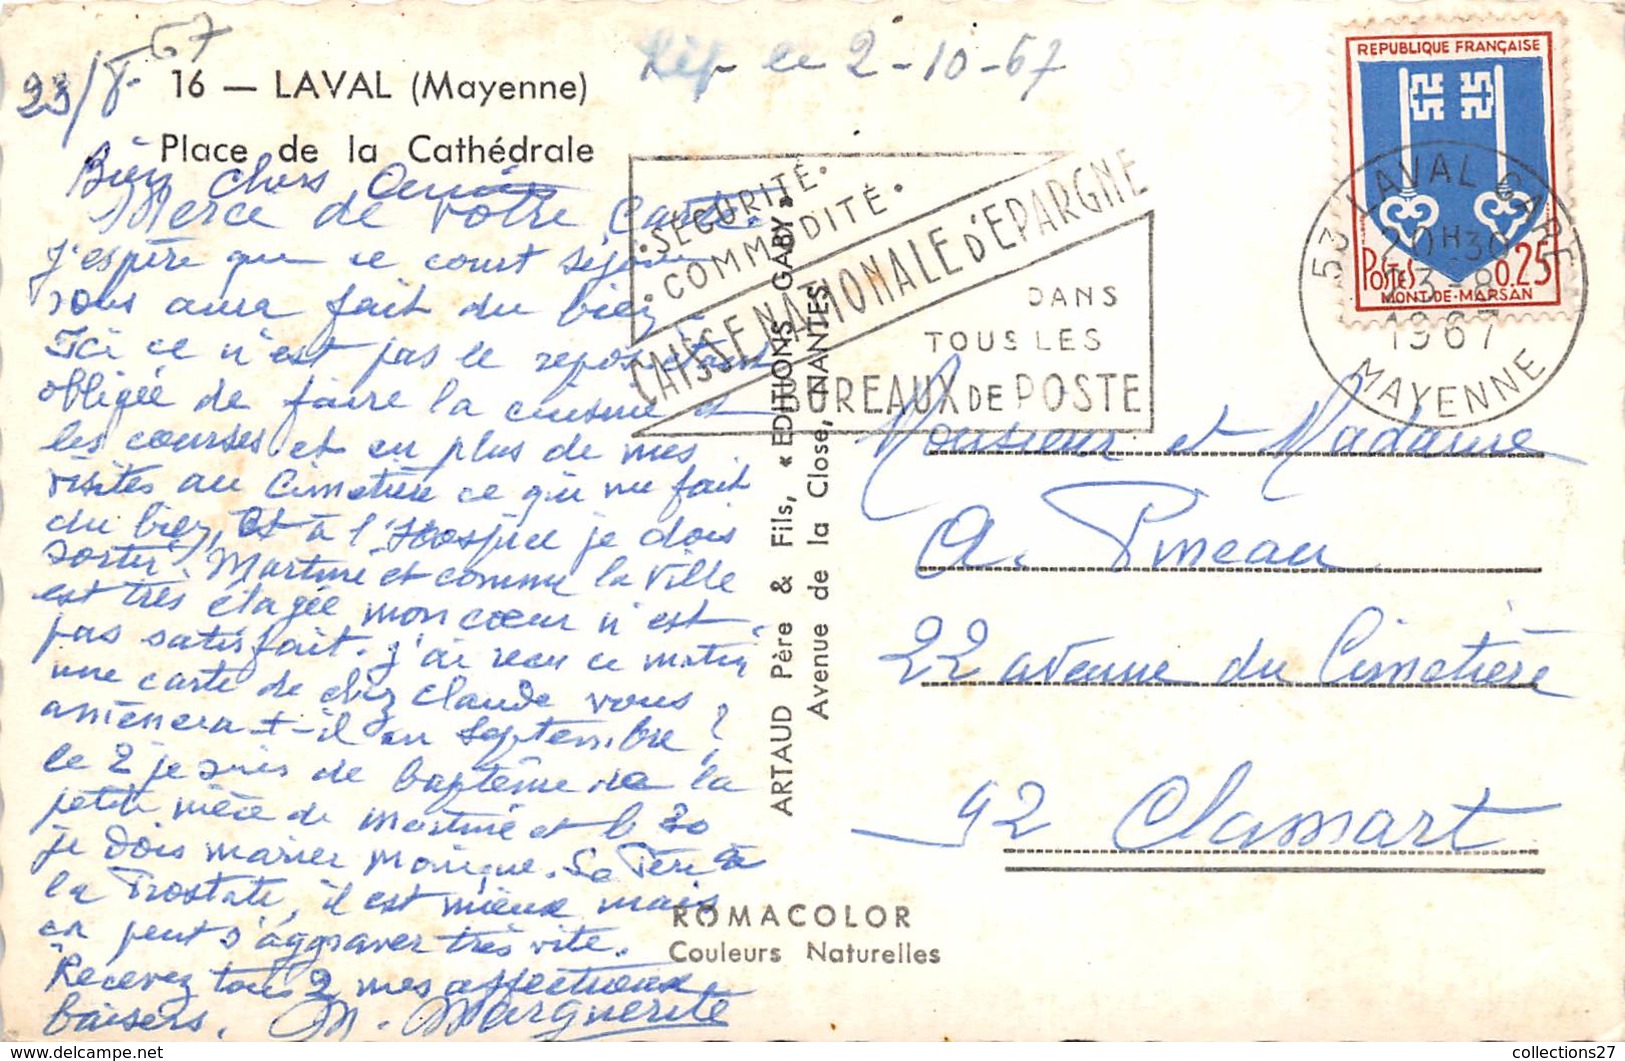 23/8-67
Rép le 2-10-67
16 — LAVAL (Mayenne)
Place de la Cathédrale
Bien chers Amis
Merce de votre carte.
j'espère que ce court séjour
vous aura fait du bien.
Ici ce n'est pas le repos étant
obligée de faire la cuisine et
les courses et en plus de mes
visites au Cimetière ce qui me fait
du bien, et à l'Hospice je dois
sortir Martine et comme la ville
est très étagée mon cœur n'est
pas satisfait. J'ai reçu ce matin
une carte de chez Claude vous
amènera-t-il en Septembre?
le 2 je suis de baptême de la
petite nièce de Martine et le 30
je dois marier Monique. Sa Père a
la Prostate, il est mieux mais
ça peut s'aggraver très vite.
Recevez tous 2 mes affectueux
baisers. M. Marguerite
ARTAUD Père & Fils, « EDITIONS GABY »
Avenue de la Close, NANTES
• SÉCURITÉ •
• COMMODITÉ •
CAISSE NATIONALE D'ÉPARGNE
DANS
TOUS LES
BUREAUX DE POSTE
REPUBLIQUE FRANÇAISE
POSTES 0,25
MONT-DE-MARSAN
53 LAVAL GARE
20H30
23-8
1967
MAYENNE
Monsieur et Madame
A. Pineau
22 avenue du Cimetière
92 Clamart
ROMACOLOR
Couleurs Naturelles
collections27